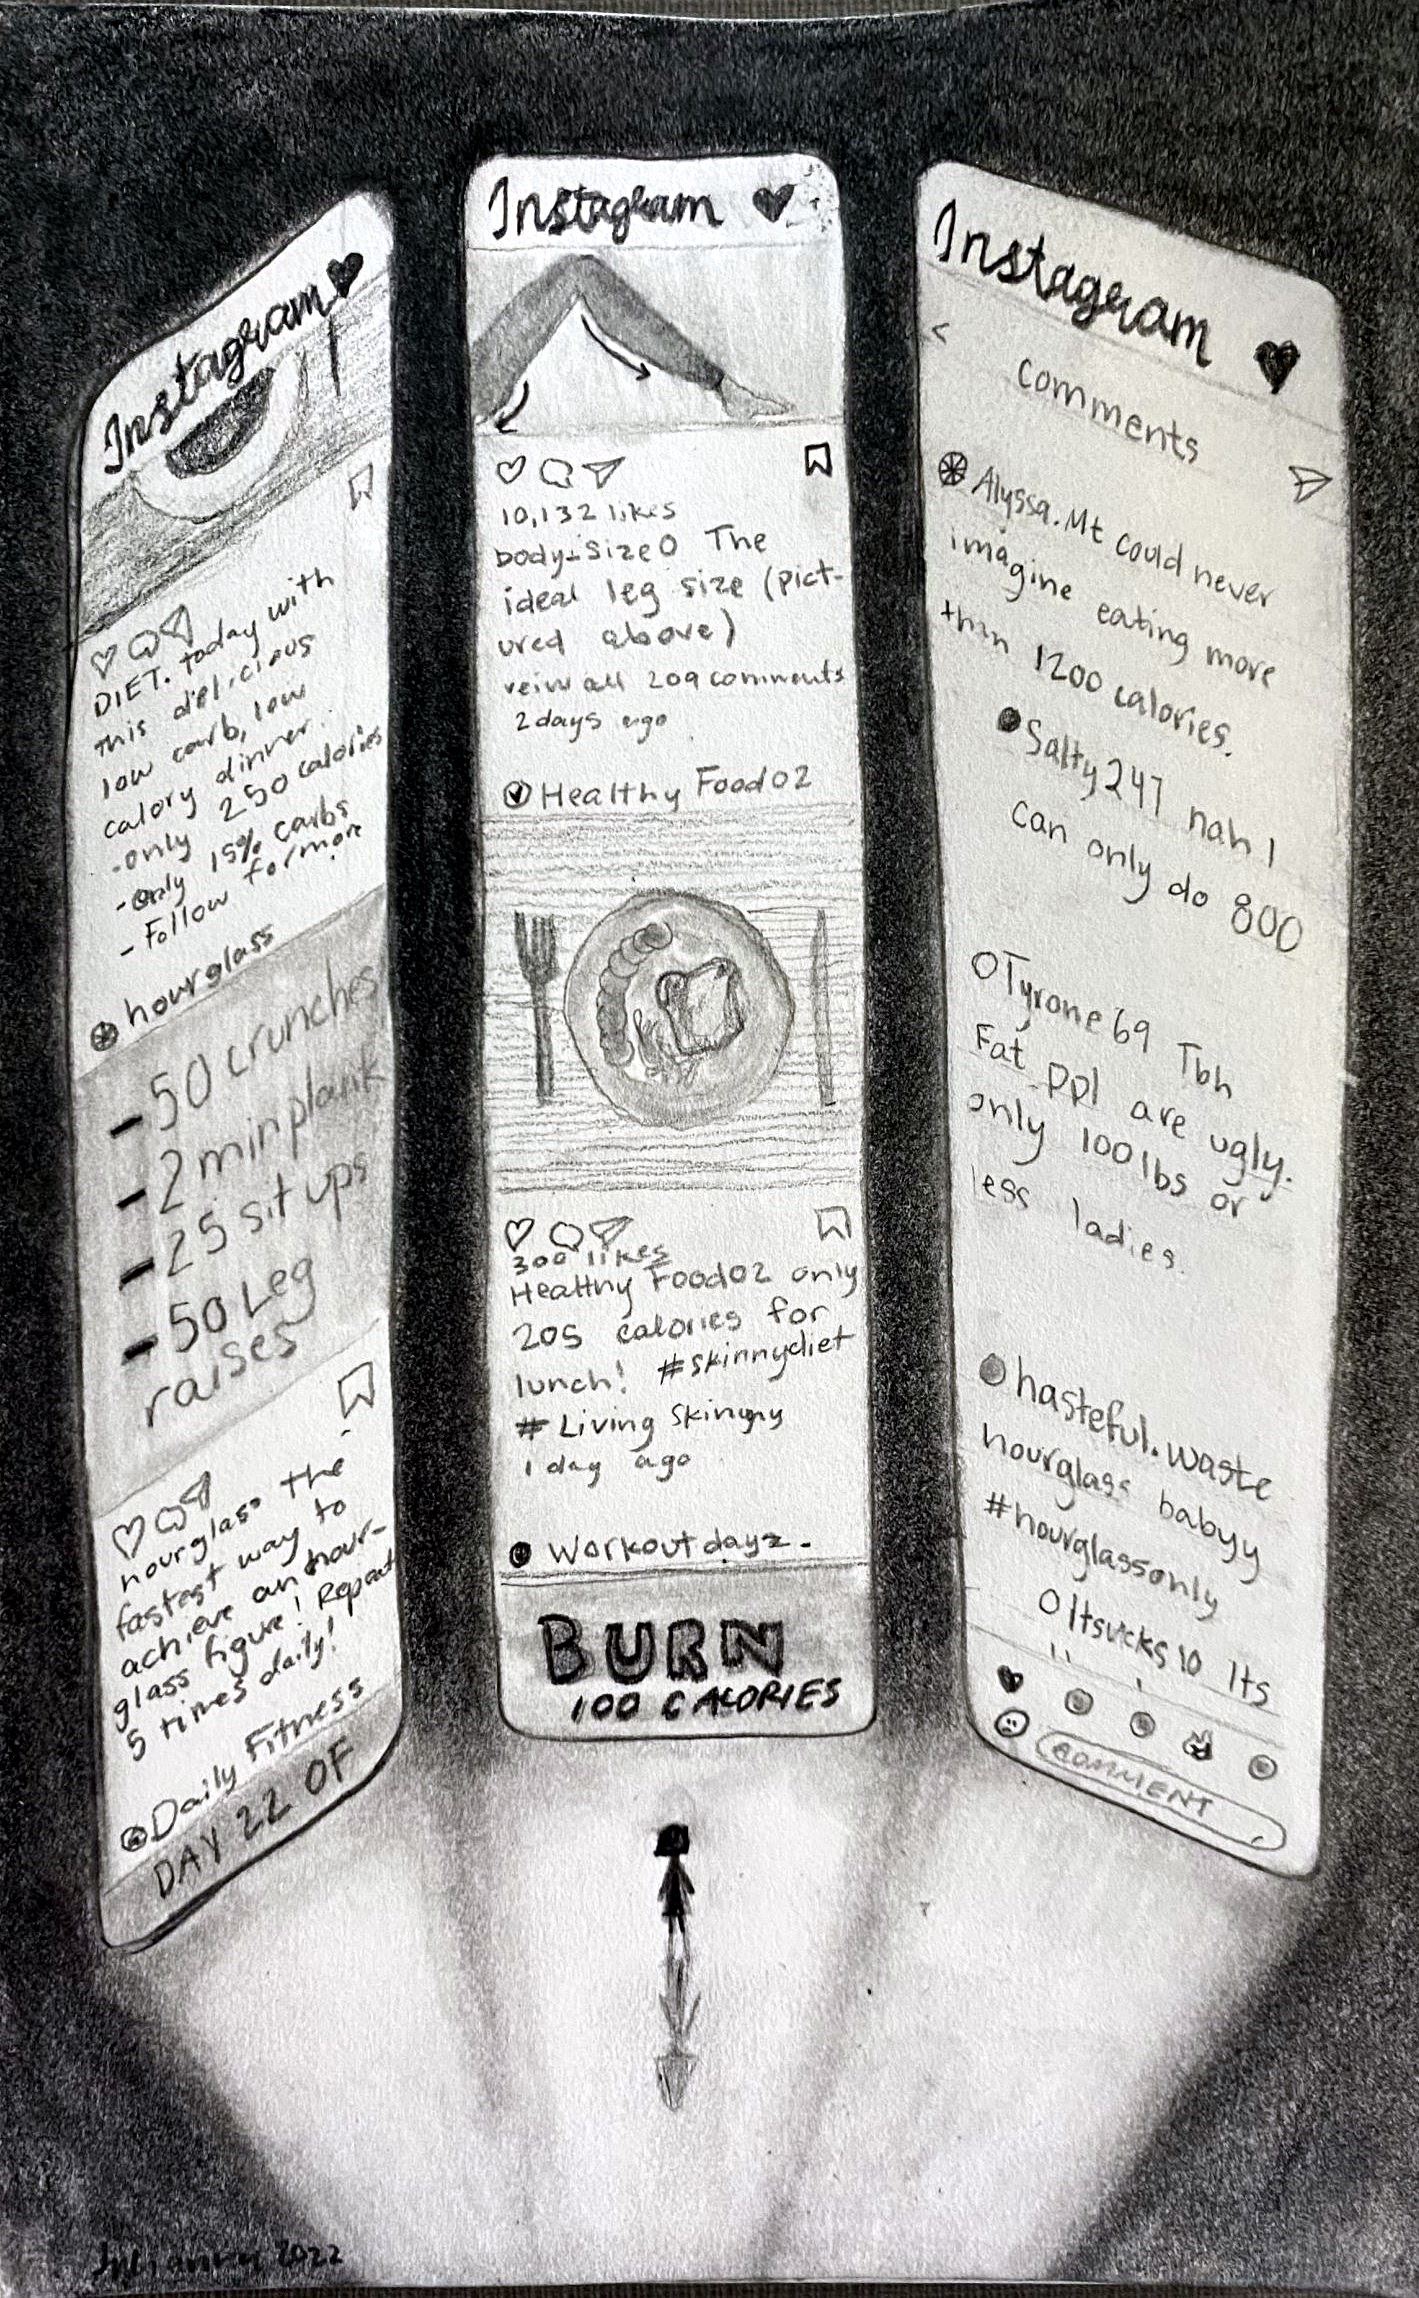 Instagram
DIET. today with
this delicious
low carb, low
calory dinner.
-only 250 calories
-only 15% carbs
- Follow for more
hourglass
- 50 crunches
- 2 min plank
- 25 sit ups
- 50 Leg
raises
hourglass The
fastest way to
achieve an hour-
glass figure! Repeat
5 times daily!
Daily Fitness
DAY 22 OF
Instagram
10,132 likes
body-size0 The
ideal leg size (pict-
ured above)
veiw all 209 comments
2 days ago
Healthy Food02
300 likes
Healthy Food02 only
205 calories for
lunch! #skinnydiet
# Living Skinny
1 day ago
Workout dayz.
BURN
100 CALORIES
Instagram
<
comments
Alyssa.Mt could never
imagine eating more
than 1200 calories.
Salty247 nah I
can only do 800
Tyrone69 Tbh
Fat ppl are ugly.
only 100lbs or
less ladies.
hasteful.waste
hourglass babyy
#hourglassonly
Itsucks10 Its
COMMENT
2022